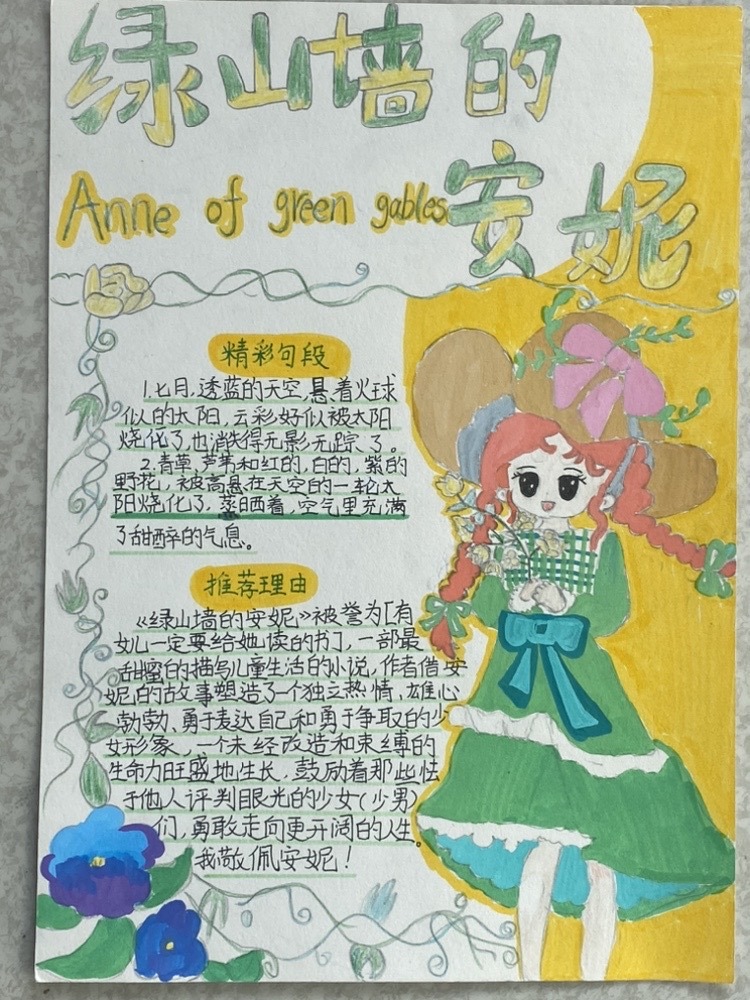 绿山墙的
Anne of green gables
安妮
精彩句段
1.七月,透蓝的天空,悬着火球
似的太阳,云彩好似被太阳
烧化了,也消失得无影无踪了。
2.青草、芦苇和红的,白的,紫的
野花,被高悬在天空的一轮太
阳烧化了,蒸晒着,空气里充满
了甜醉的气息。
推荐理由
《绿山墙的安妮》被誉为[有
女儿一定要给她读的书],一部最
甜蜜的描写儿童生活的小说,作者借安
妮的故事塑造了一个独立热情、雄心
勃勃、勇于表达自己和勇于争取的少
女形象,一个未经改造和束缚的
生命力旺盛地生长,鼓励着那些怯
于他人评判眼光的少女(少男)
们,勇敢走向更开阔的人生。
我敬佩安妮!